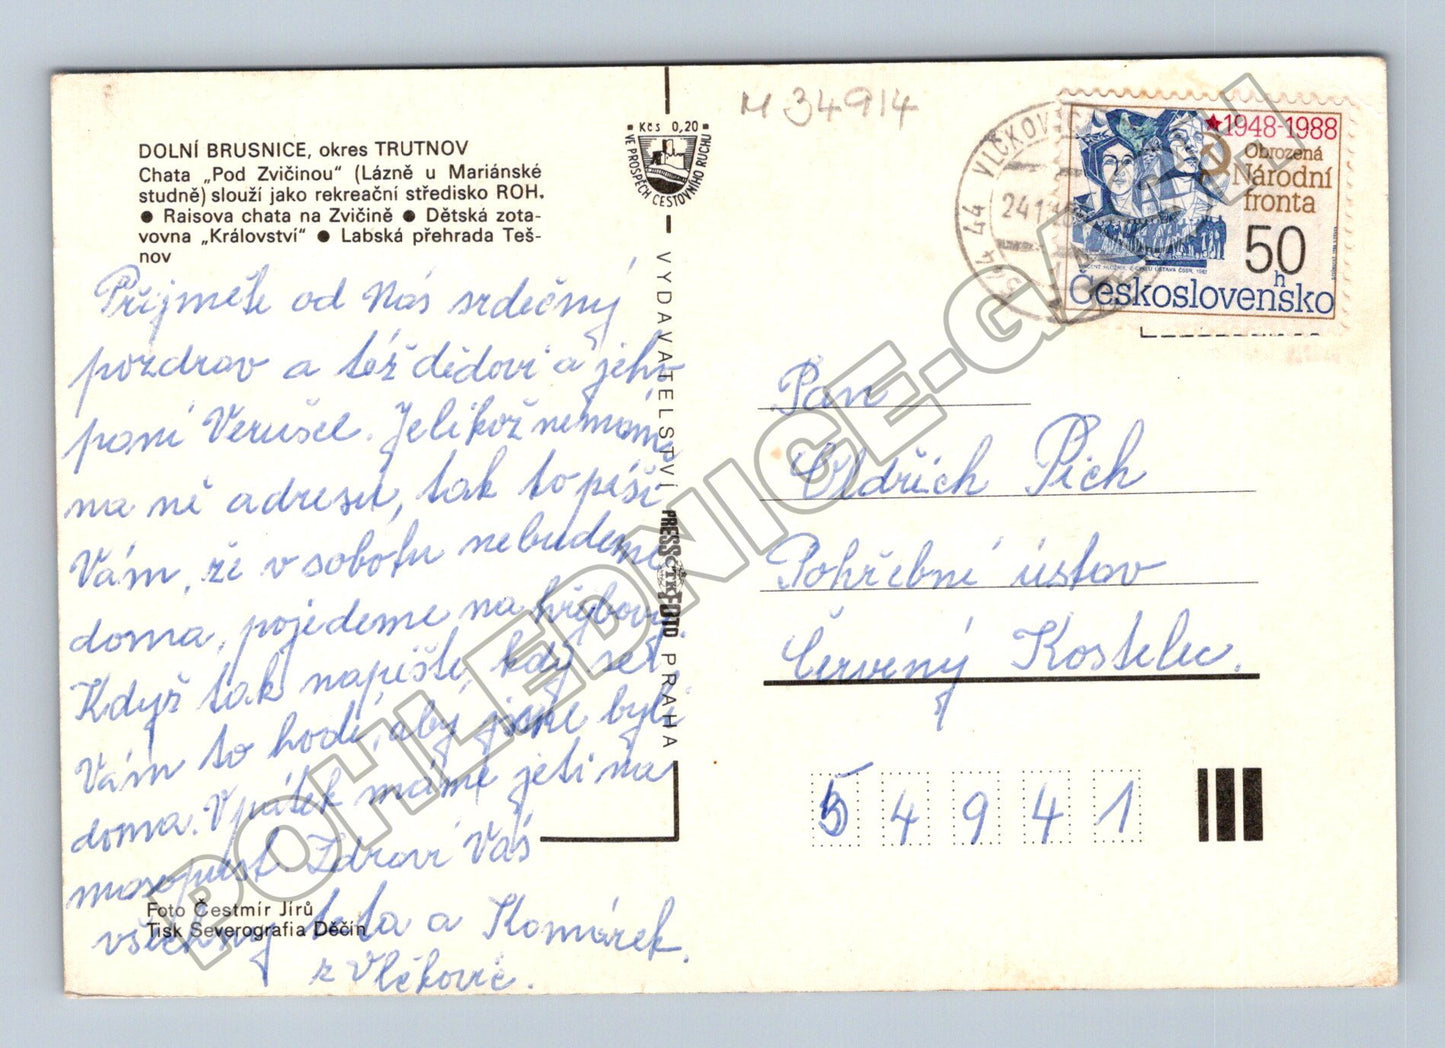 M 34914
DOLNÍ BRUSNICE, okres TRUTNOV
Chata „Pod Zvičinou" (Lázně u Mariánské
studně) slouží jako rekreační středisko ROH.
● Raisova chata na Zvičině ● Dětská zota-
vovna „Království" ● Labská přehrada Teš-
nov
Přijměte od Nás srdečný
pozdrav a též dědovi a jeho
paní Verušce. Jelikož nemáme
na ně adresu, tak to píši
Vám, že v sobotu nebudeme
doma, pojedeme na hřybovi.
Když tak napište, kdy se
Vám to hodí, aby jsme byli
doma. V pátek máme jeti na
masopust. Zdraví Vás
všechny teta a Komárek.
z Vlčkovic.
Foto Čestmír Jírů
Tisk Severografia Děčín
Kčs 0,20
VE PROSPĚCH CESTOVNÍHO RUCHU
VYDAVATELSTVÍ PRESSFOTO PRAHA
ČTK
544 44 VLČKOVICE
24.1
★1948-1988
Obrozená
Národní
fronta
50
h
Československo
Pan
Oldřich Pich
Pohřební ústav
Červený Kostelec.
54941
POHLEDNICE-GAHJ